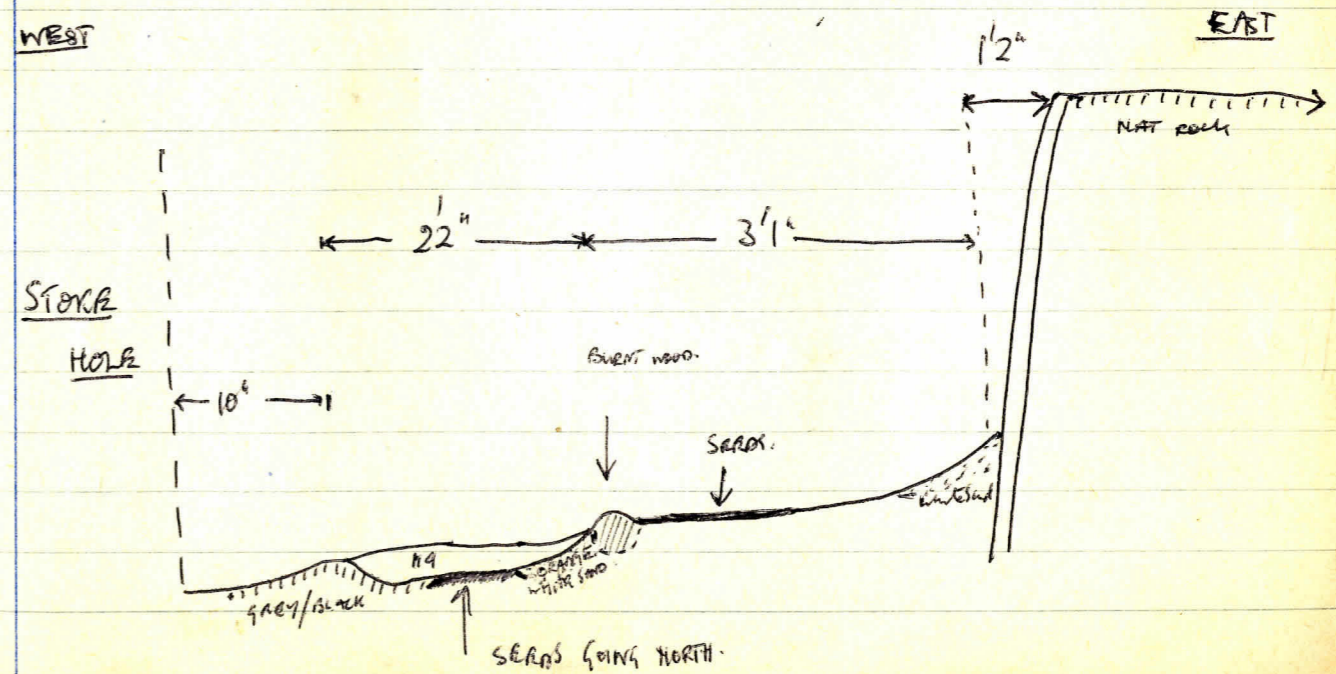 WEST
EAST
1'2"
NAT ROCK
2'2"
3'1"
STOKE
HOLE
10"
BURNT WOOD.
SEEDS.
White Sand
ORANGE
WHITE SAND
GREY/BLACK
SEEDS GOING NORTH.